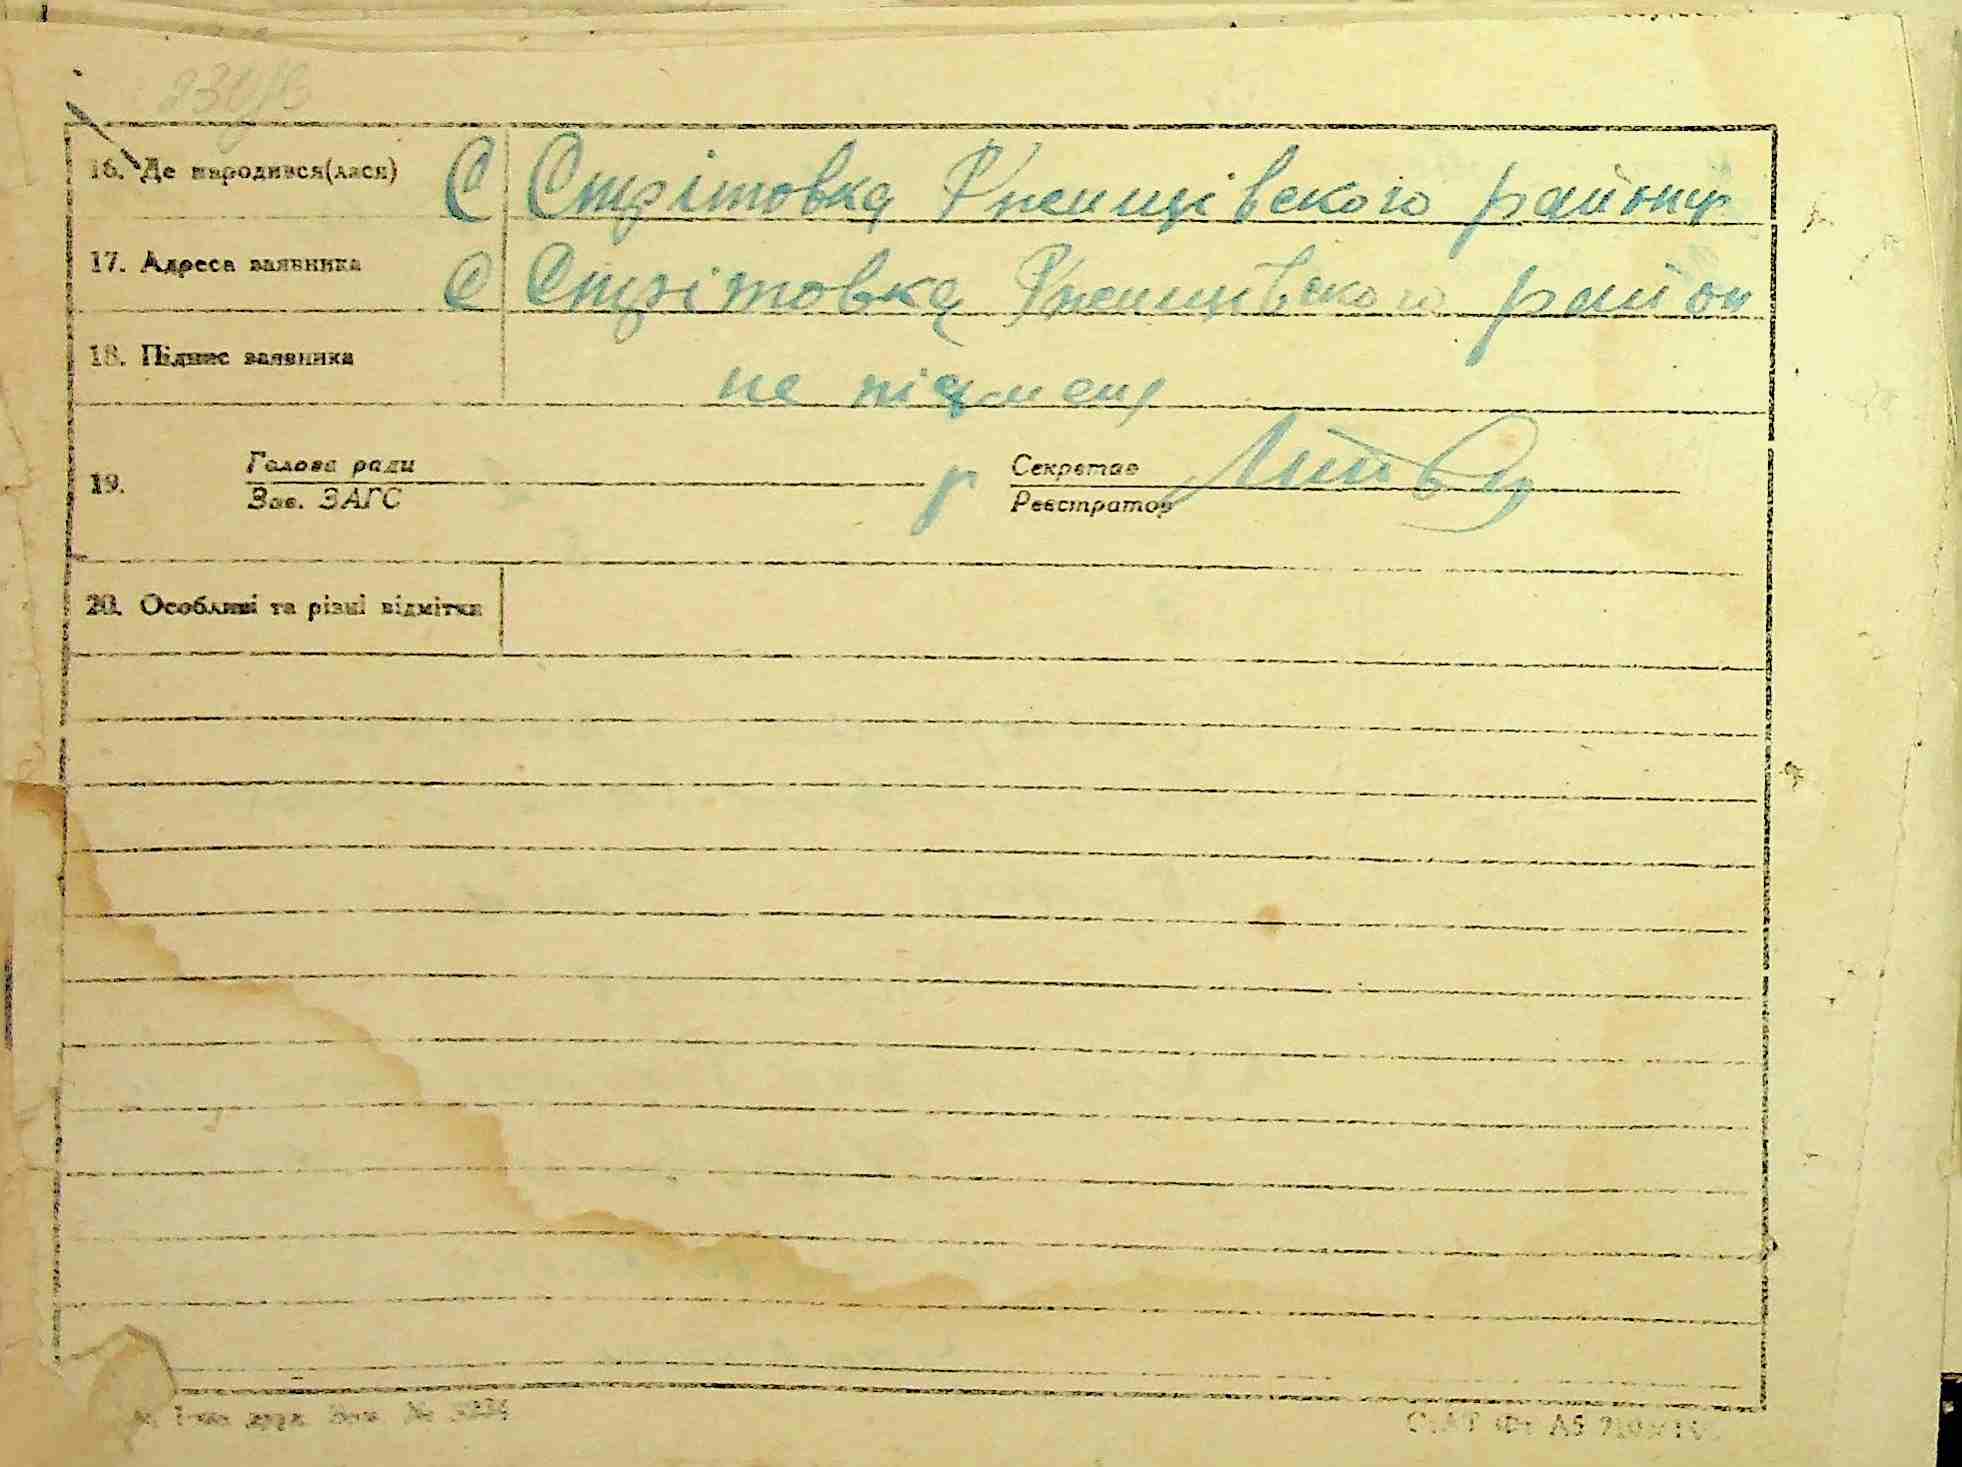 16. Де народився(лася) С Стрітовка Ржищівського району
17. Адреса заявника С Стрітовка Ржищівського район
18. Підпис заявника
не письмен
19. Голова ради Секретар
Зав. ЗАГС Реєстратор
20. Особливі та різні відмітки